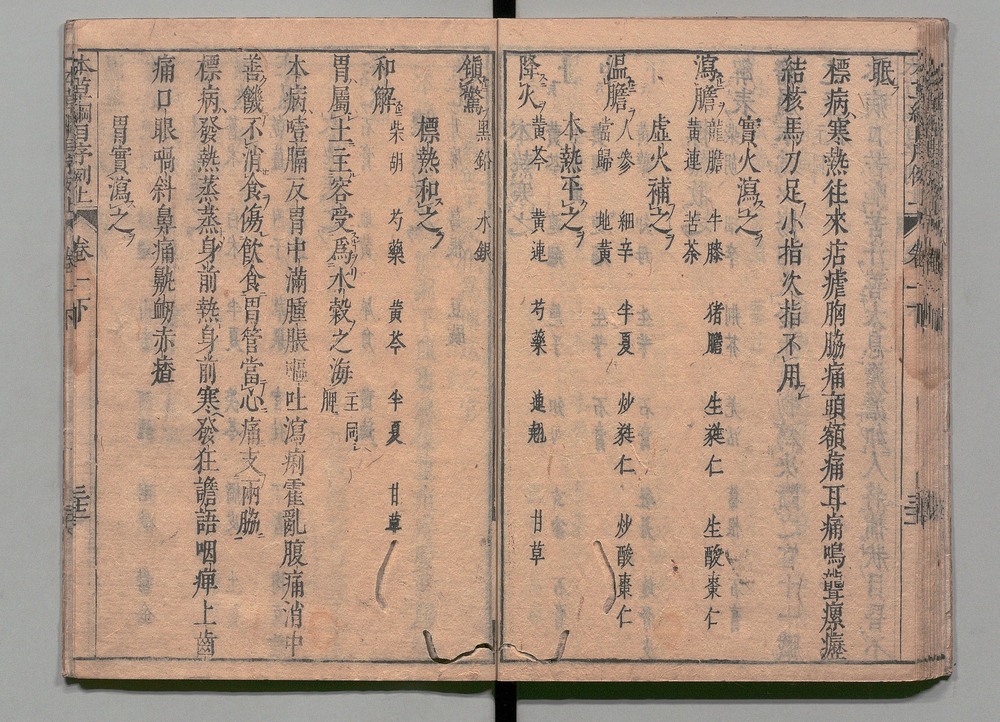 眠
標病寒熱往來痁瘧胸脇痛頭額痛耳痛鳴聾瘰癧
結核馬刀足小指次指不用
實火瀉之
瀉膽 龍膽 牛膝 猪膽 生蕤仁 生酸棗仁
黃連 苦茶
虛火補之
温膽 人參 細辛 半夏 炒蕤仁 炒酸棗仁
當歸 地黃
本熱平之
降火 黃芩 黃連 芍藥 連翹 甘草
鎮驚 黒鉛 水銀
標熱和之
和解 柴胡 芍藥 黃芩 半夏 甘草
胃屬土主容受爲水穀之海 主同脾
本病噎膈反胃中滿腫脹嘔吐瀉痢霍亂腹痛消中
善饑不消食傷飲食胃管當心痛支兩脇
標病發熱蒸蒸身前熱身前寒發狂譫語咽痺上齒
痛口眼喎斜鼻痛鼽衂赤㾴
胃實瀉之
本草綱目序例上 卷一下